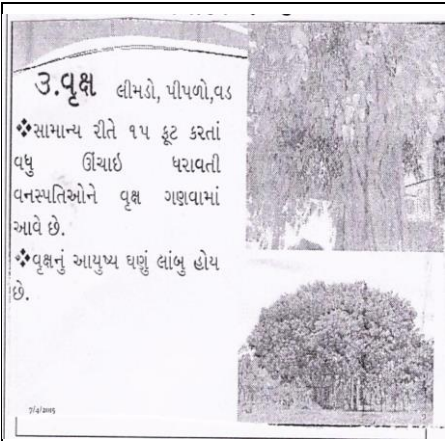 ૩.વૃક્ષ લીમડો, પીપળો,વડ
❖સામાન્ય રીતે ૧૫ ફૂટ કરતાં
વધુ ઊંચાઇ ધરાવતી
વનસ્પતિઓને વૃક્ષ ગણવામાં
આવે છે.
❖વૃક્ષનું આયુષ્ય ઘણું લાંબુ હોય
છે.
7/4/2015